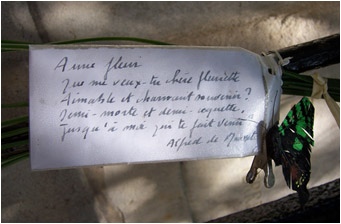 A une fleur
Que me veux-tu chère fleurette
Aimable et charmant souvenir?
Demi-morte et demi-coquette,
Jusqu'à moi qui te fait venir
Alfred de Musset